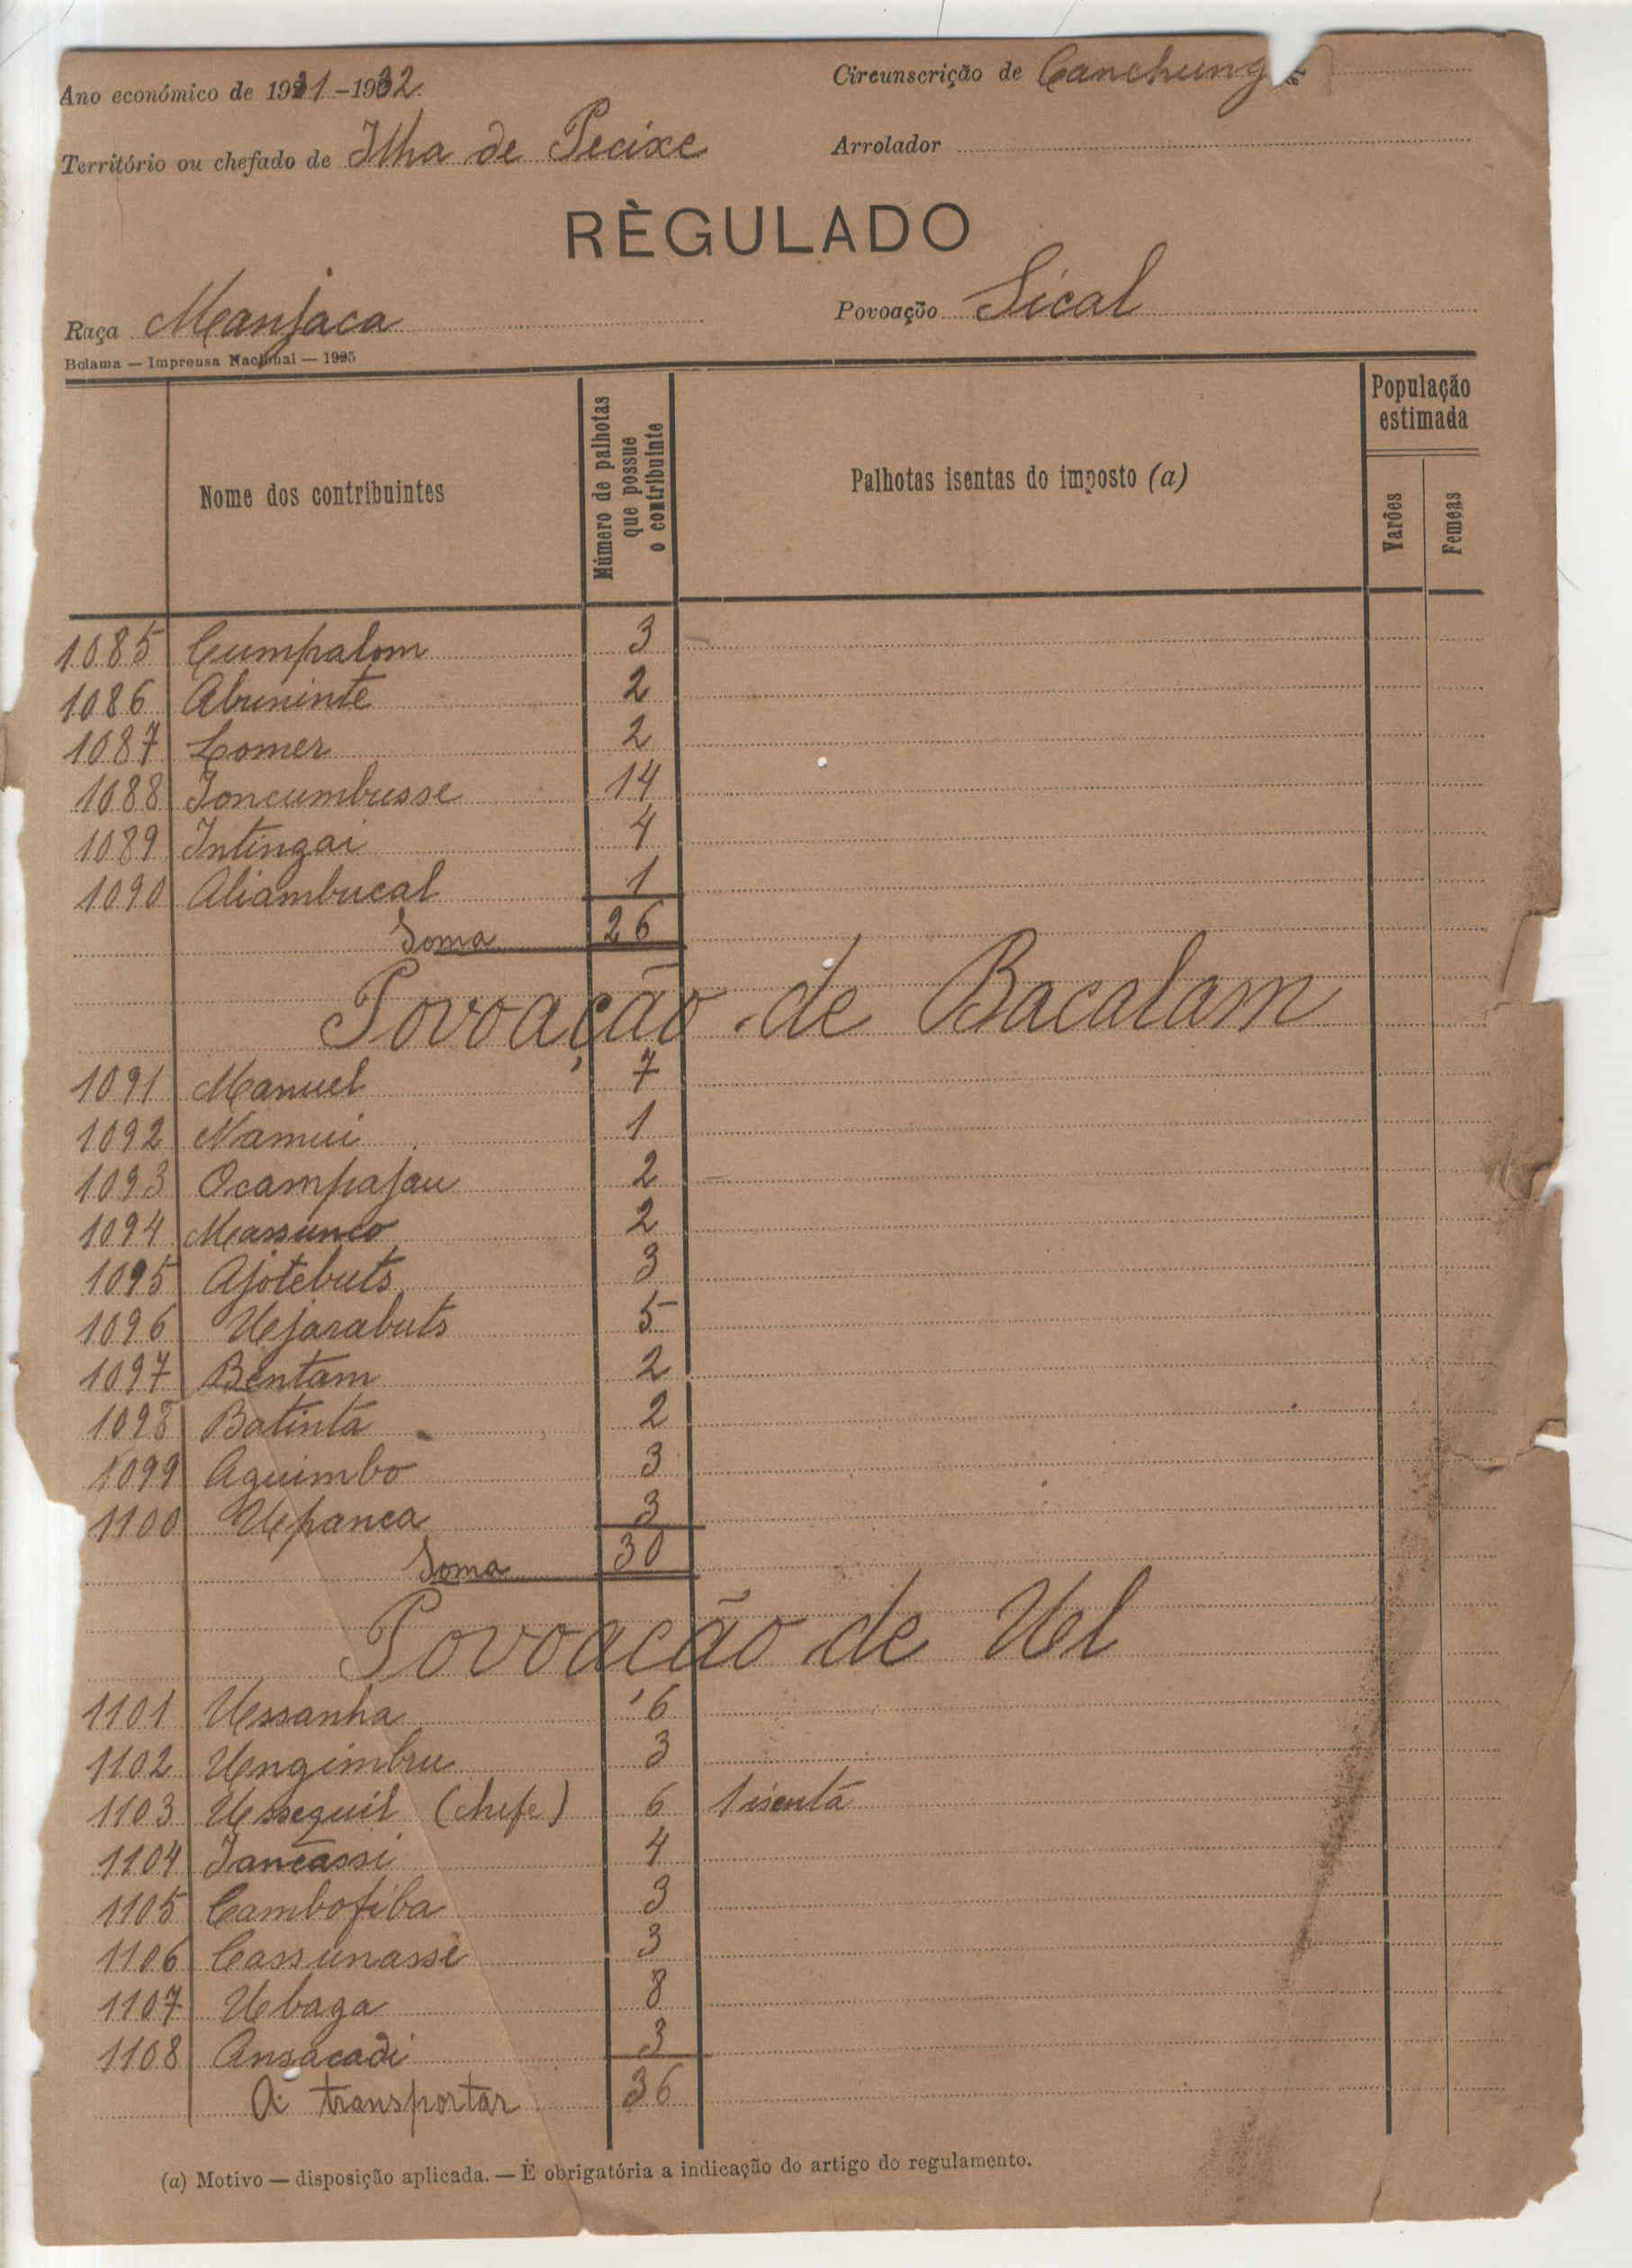 Ano económico de 1931-1932.
Circunscrição de Canchungo
Território ou chefado de Ilha de Pecixe
Arrolador
RÈGULADO
Raça Manjaca
Povoação Sical
Bolama — Imprensa Nacional — 1925
Nome dos contribuintes
Número de palhotas que possue o contribuinte
Palhotas isentas do imposto (a)
População estimada
Varões
Femeas
1085 Cumpalom 3
1086 Abuninte 2
1087 Lomer 2
1088 Joncumbusse 14
1089 Intingai 4
1090 Aliambucal 1
Soma 26
Povoação de Bacalam
1091 Manuel 7
1092 Namui 1
1093 Ocampajau 2
1094 Massunco 2
1095 Ajotebuts 3
1096 Ujarabuts 5
1097 Bentam 2
1098 Batinta 2
1099 Aquimbo 3
1100 Upanca 3
Soma 30
Povoação de Uel
1101 Ussanha 6
1102 Ungimbru 3
1103 Ussequil (chefe) 6 1 isenta
1104 Jancassi 4
1105 Cambofiba 3
1106 Cassunasse 3
1107 Ubaga 8
1108 Ansacadi 3
A transportar 36
(a) Motivo — disposição aplicada. — É obrigatória a indicação do artigo do regulamento.